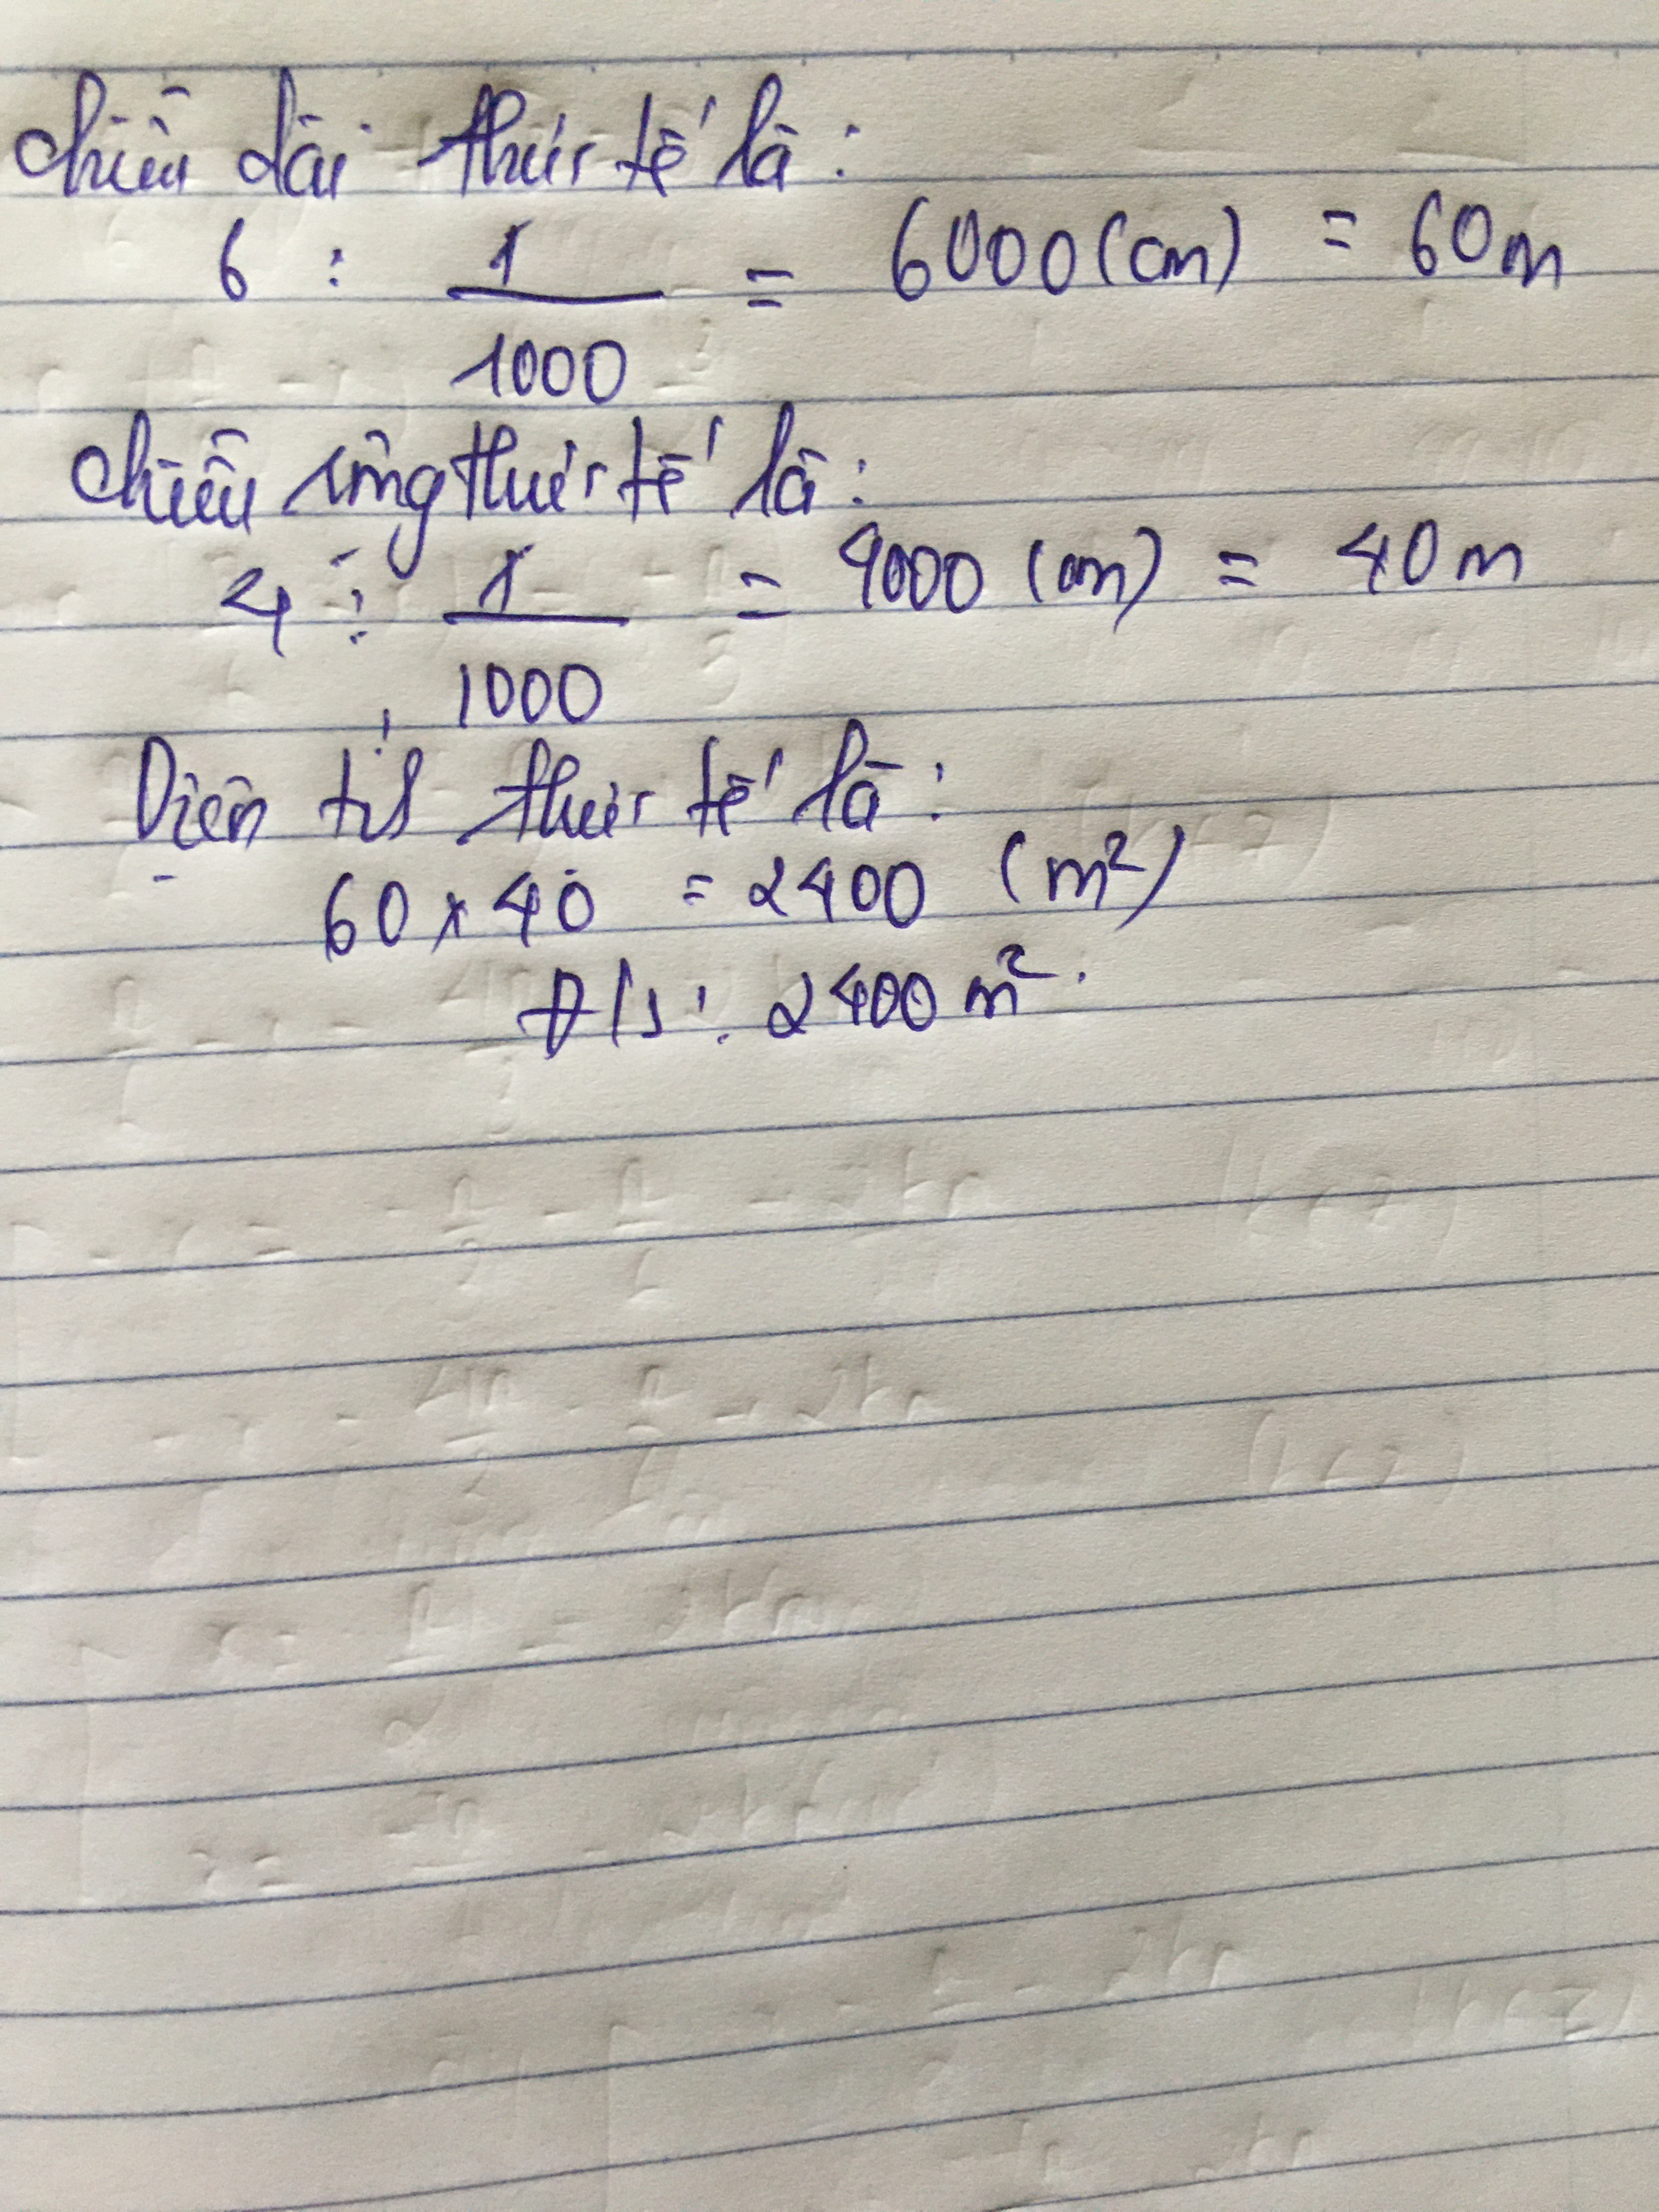 chiều dài thực tế là:
6 : 1/1000 = 6000 (cm) = 60m
chiều rộng thực tế là:
4 : 1/1000 = 4000 (cm) = 40m
Diện tích thực tế là:
60 x 40 = 2400 (m²)
Đ/s: 2400 m².